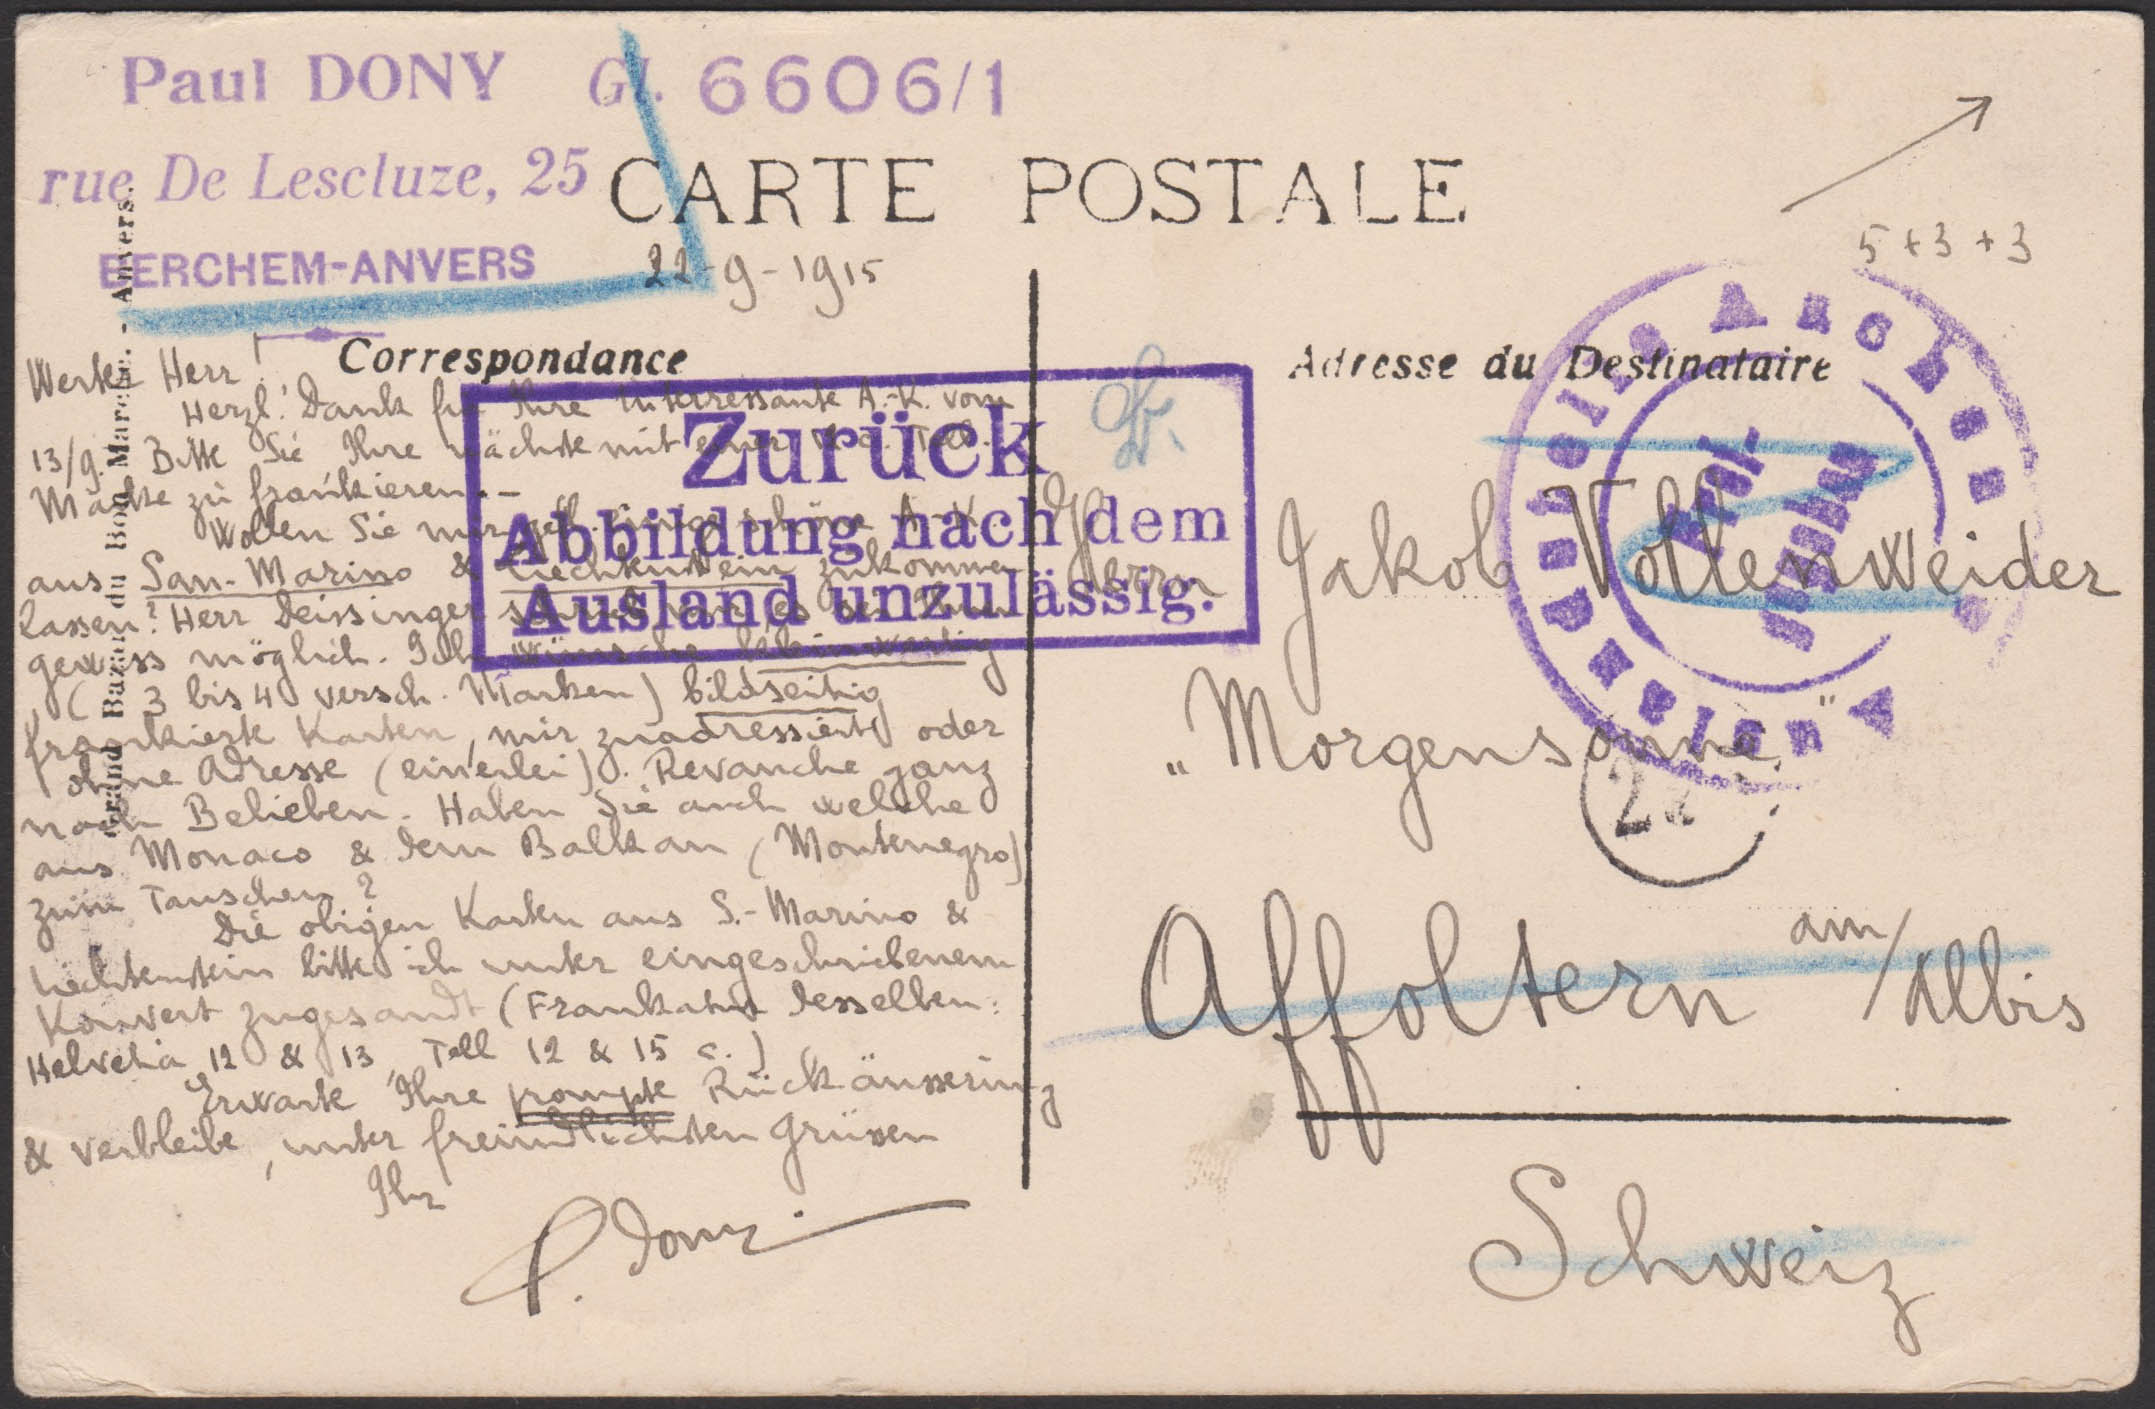 Paul DONY Gl. 6606/1
rue De Lescluze, 25
BERCHEM-ANVERS
CARTE POSTALE
22-9-1915
5+3+3
Correspondance
Adresse du Destinataire
Grand Bazar du Bon Marché. - Anvers.
Zurück
Abbildung nach dem
Ausland unzulässig.
Auslandstelle Aachen
Werter Herr!
Herzl. Dank für Ihre interressante A.-K. vom
13/9. Bitte Sie Ihre nächste mit einer Tell-
Marke zu frankieren. -
Wollen Sie mir gefl. einige schöne A.-K.
aus San-Marino & Liechtenstein zukommen
lassen? Herr Deissinger es bei Ihnen
gewiss möglich. Ich wünsche kleinwertig
(3 bis 4 versch. Marken) bildseitig
frankierte Karten, mir zuadressiert oder
ohne Adresse (einerlei). Revanche ganz
nach Belieben. Haben Sie auch welche
aus Monaco & dem Balkan (Montenegro)
zum Tauschen?
Die obigen Karten aus S.-Marino &
Liechtenstein bitte ich unter eingeschriebenem
Konvert zugesandt (Frankatur desselben:
Helvetia 12 & 13, Tell 12 & 15 c.)
Erwarte Ihre prompte Rückäusserung
& verbleibe, unter freundlichsten Grüssen
Ihr
P. Dony
Herrn Jakob Vollenweider
„Morgensonne"
22
Affoltern am/Albis
Schweiz